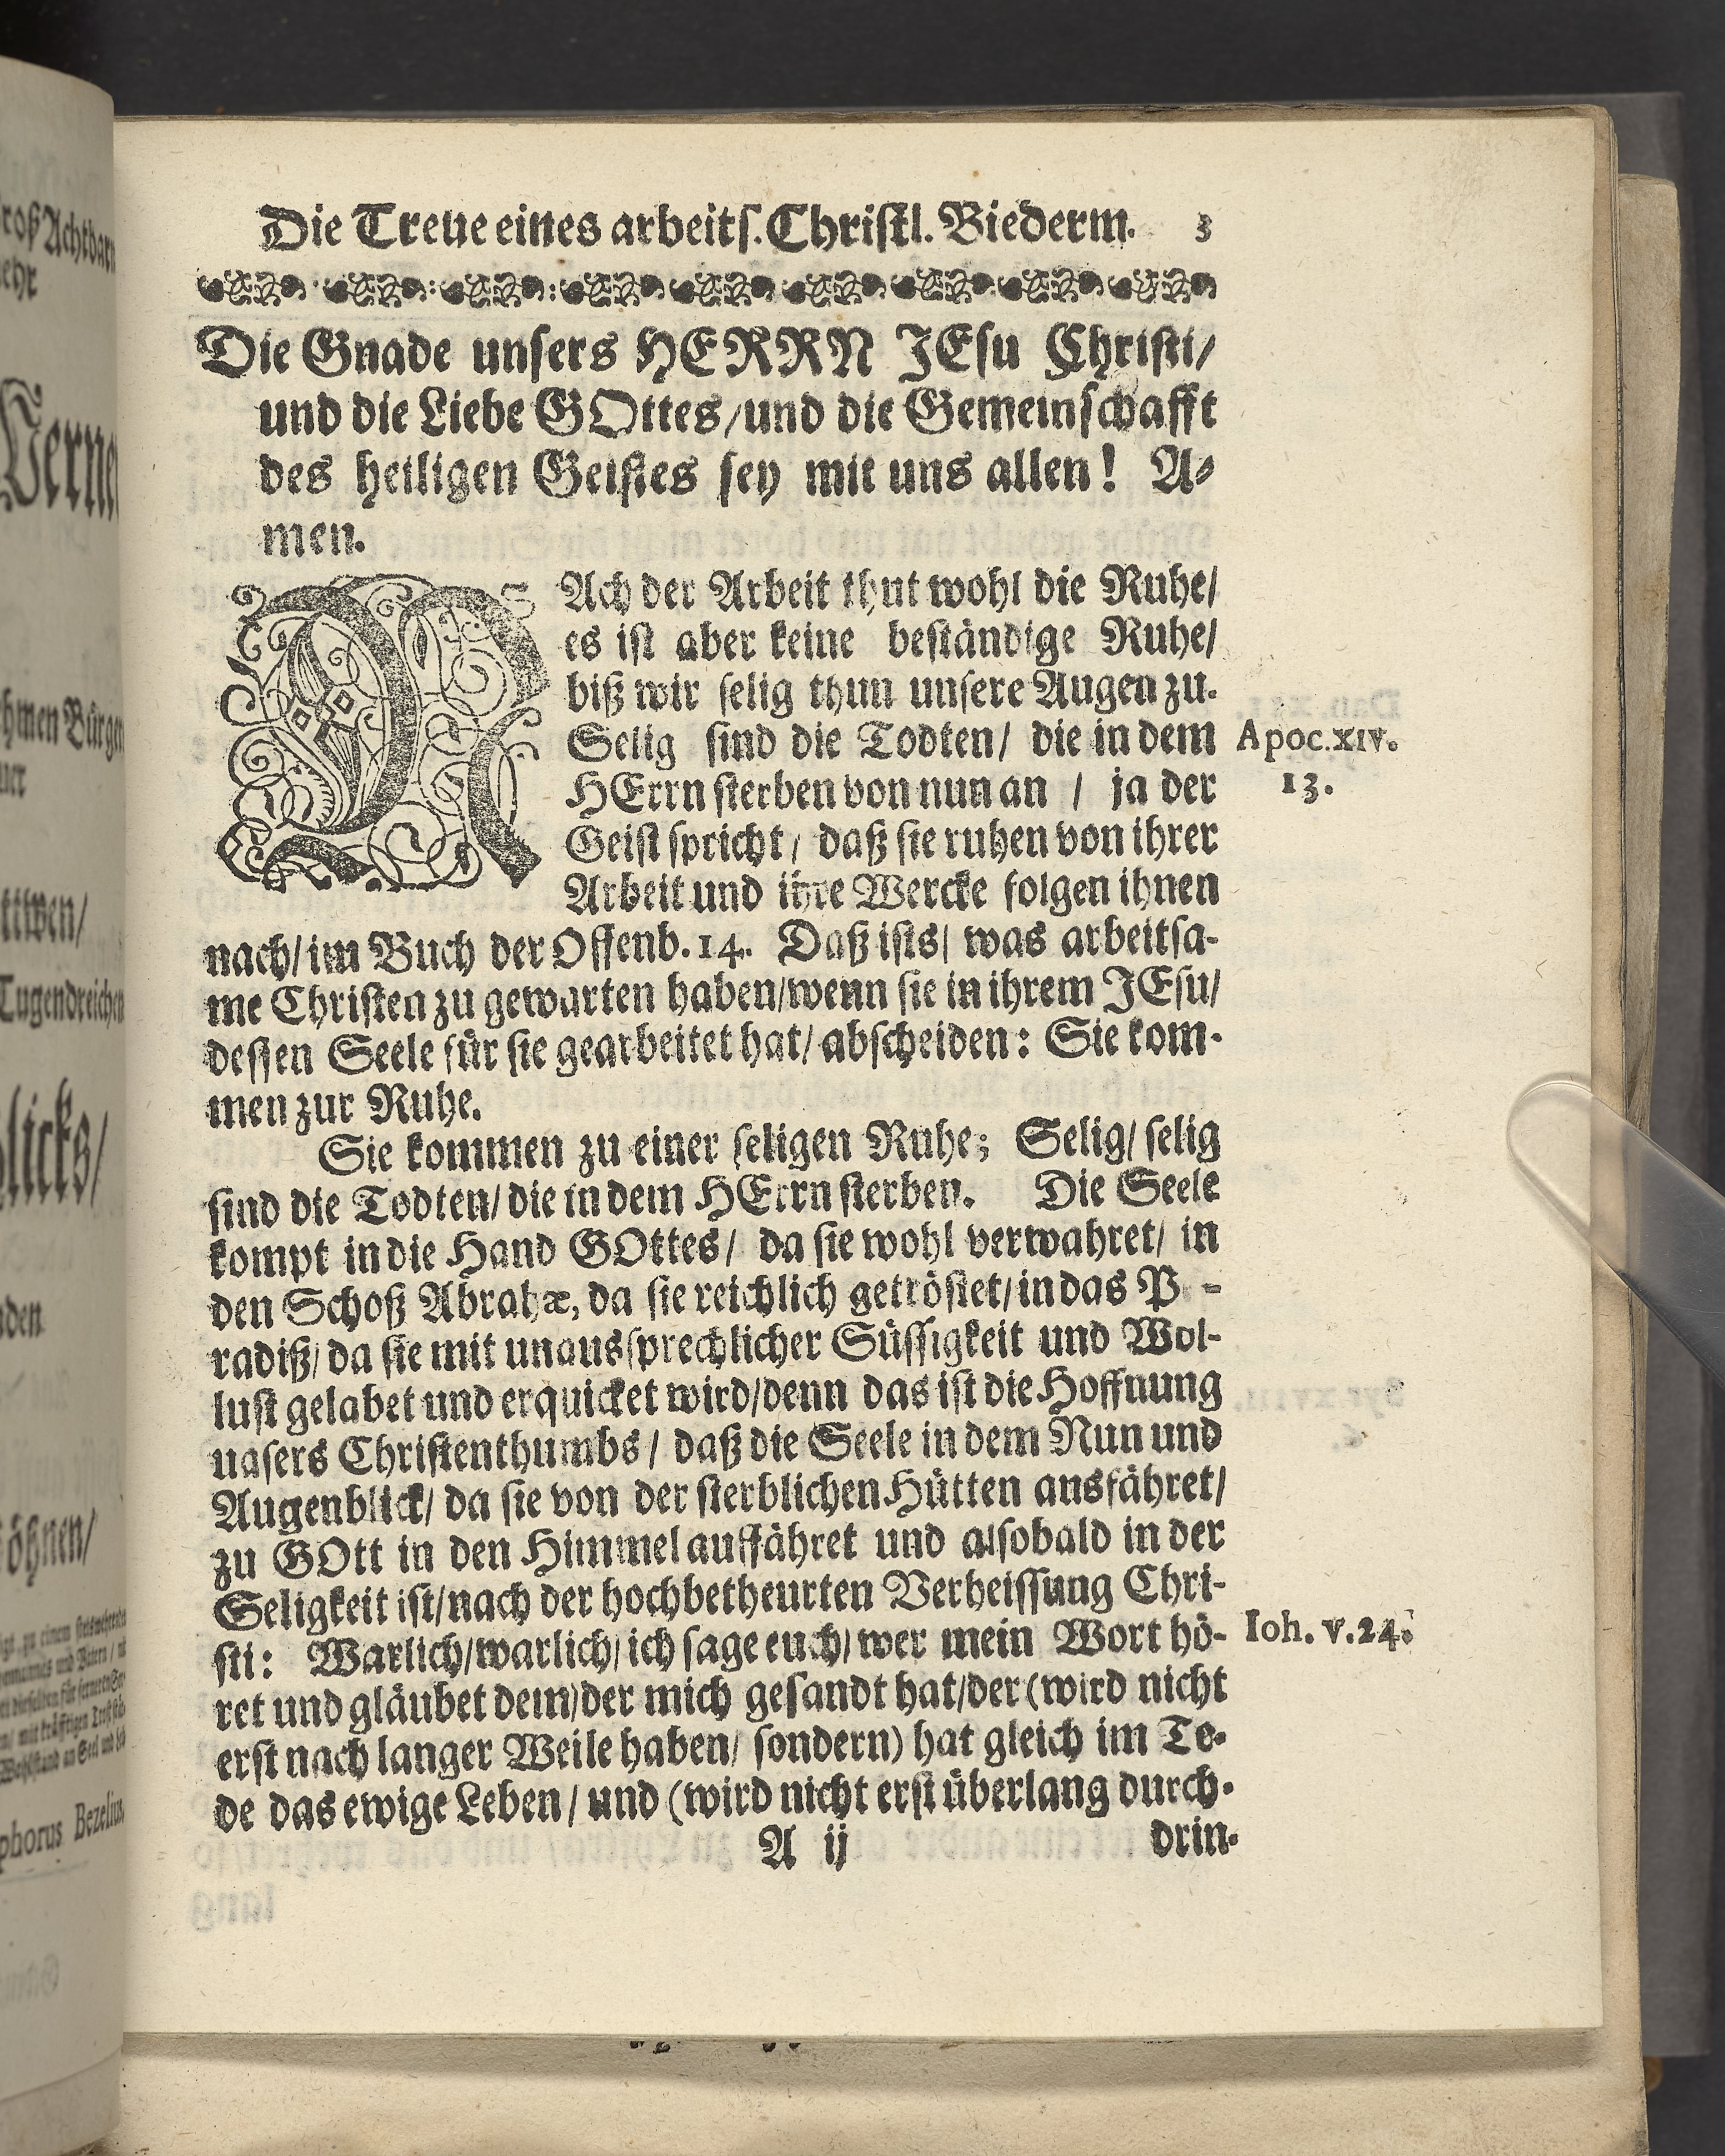 Die Treue eines arbeitſ. Chriſtl. Biederm. 3
Die Gnade unſers HERRN JEſu Chriſti/
und die Liebe GOttes/und die Gemeinſchafft
des heiligen Geiſtes ſey mit uns allen! A⸗
men.
NAch der Arbeit thut wohl die Ruhe/
es iſt aber keine beſtändige Ruhe/
biß wir ſelig thun unſere Augen zu.
Selig ſind die Todten/ die in dem
Apoc. XIV.
13.
HErrn ſterben von nun an / ja der
Geiſt ſpricht/ daß ſie ruhen von ihrer
Arbeit und ihre Wercke folgen ihnen
nach/ im Buch der Offenb. 14. Daß iſts/ was arbeitſa-
me Chriſten zu gewarten haben/wenn ſie in ihrem JEſu/
deſſen Seele für ſie gearbeitet hat/ abſcheiden: Sie kom-
men zur Ruhe.
Sie kommen zu einer ſeligen Ruhe; Selig/ ſelig
ſind die Todten/ die in dem HErrn ſterben. Die Seele
kompt in die Hand GOttes/ da ſie wohl verwahret/ in
den Schoß Abrahæ, da ſie reichlich getröſtet/ in das P -
radiß/ da ſie mit unausſprechlicher Süſſigkeit und Wol-
luſt gelabet und erquicket wird/denn das iſt die Hoffnung
uaſers Chriſtenthumbs / daß die Seele in dem Nun und
Augenblick/ da ſie von der ſterblichen Hütten ausfähret/
zu GOtt in den Himmel auffähret und alſobald in der
Seligkeit iſt/nach der hochbetheurten Verheiſſung Chri-
ſti: Warlich/warlich/ ich ſage euch/ wer mein Wort hö-
Ioh. v. 24.
ret und gläubet dem/der mich geſandt hat/der (wird nicht
erſt nach langer Weile haben/ ſondern) hat gleich im To-
de das ewige Leben / und (wird nicht erſt überlang durch-
A ij
drin-